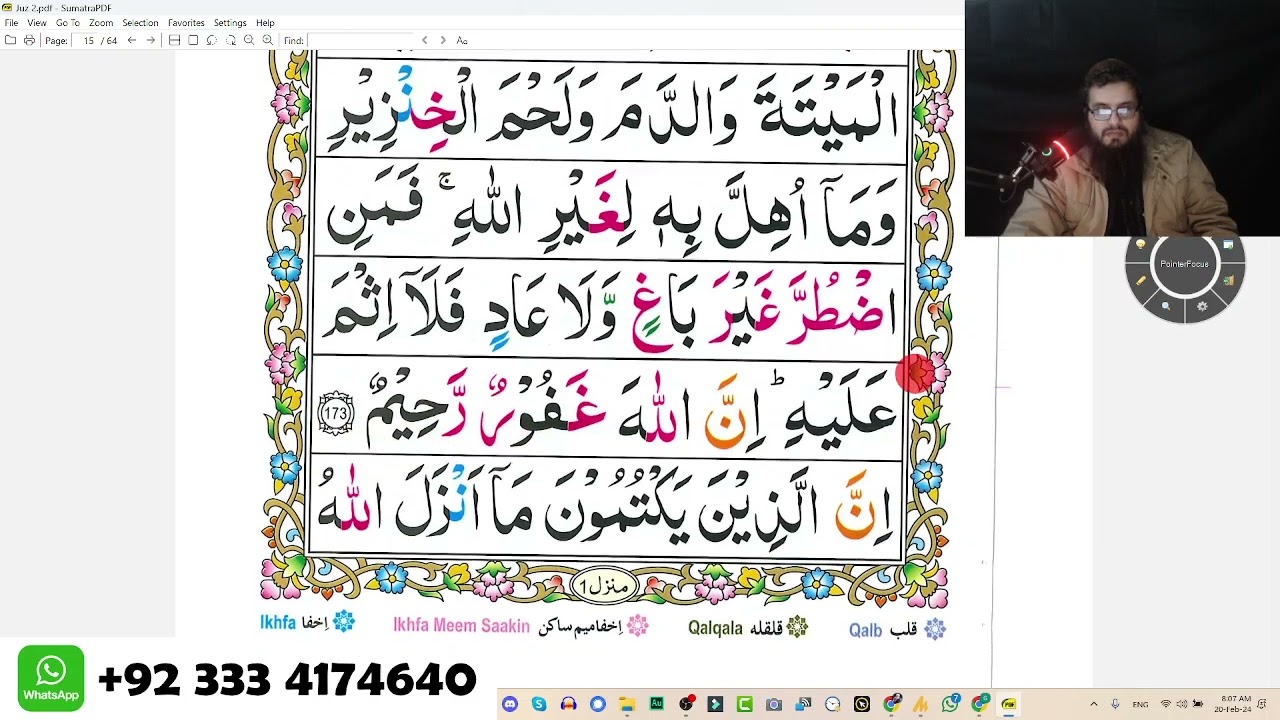 Juz 2.pdf - SumatraPDF
File View Go To Zoom Selection Favorites Settings Help
Page: 15 / 64 Find: Aa
الْمَيْتَةَ وَالدَّمَ وَلَحْمَ الْخِنْزِيْرِ
وَمَاۤ اُهِلَّ بِهٖ لِغَيْرِ اللّٰهِ ۚ فَمَنِ
اضْطُرَّ غَيْرَ بَاغٍ وَّلَا عَادٍ فَلَاۤ اِثْمَ
عَلَيْهِ ؕ اِنَّ اللّٰهَ غَفُوْرٌ رَّحِيْمٌ 173
اِنَّ الَّذِيْنَ يَكْتُمُوْنَ مَاۤ اَنْزَلَ اللّٰهُ
منزل 1
Ikhfa اِخفا Ikhfa Meem Saakin اِخفا میم ساکن Qalqala قلقله Qalb قلب
PointerFocus
WhatsApp +92 333 4174640
8:27 AM
ENG
20-Feb-24